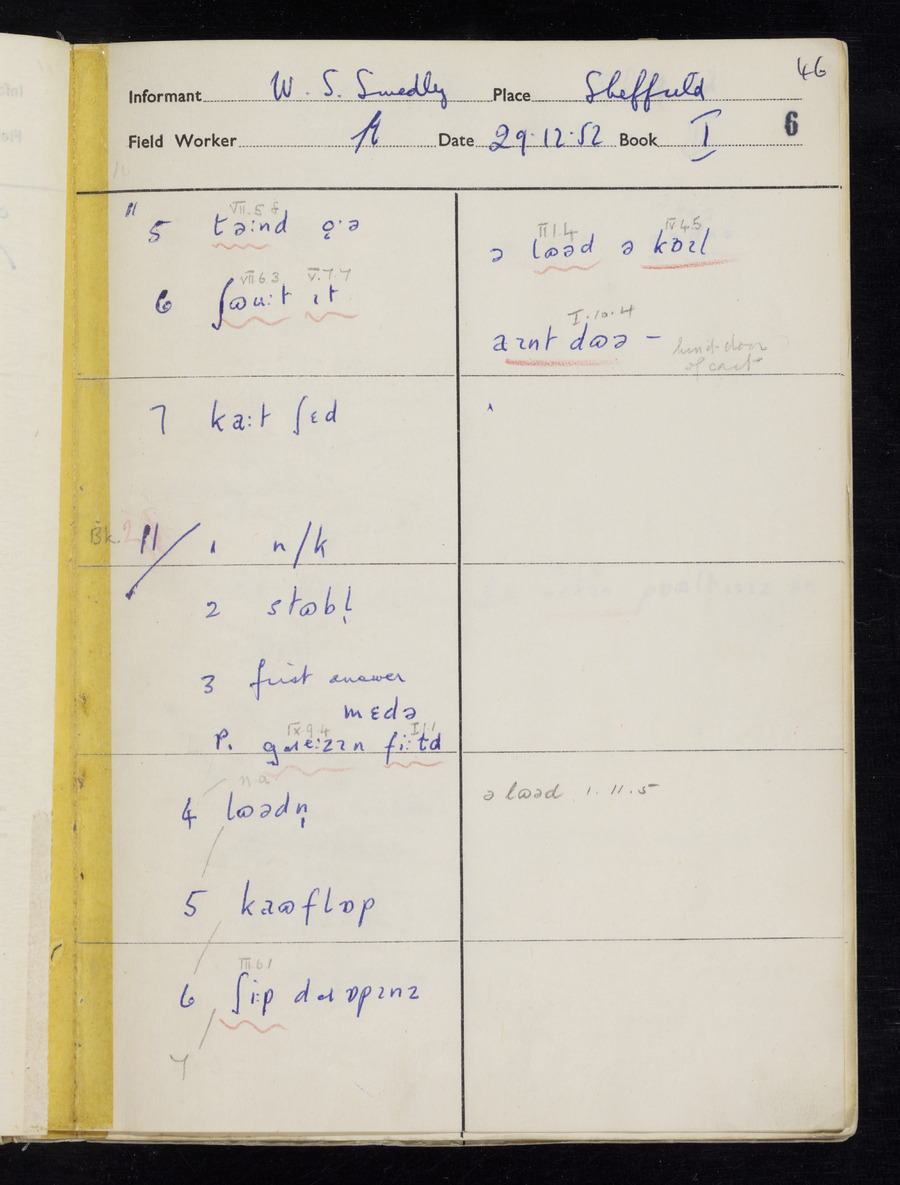 46
Informant W. S. Smedley Place Sheffield
Field Worker Date 29.12.52 Book I 6
VII.5.8
5 tə:nd
VII 6.3 V.7.7
6 ʃaʊ:t ɪt
7 ka:t ʃɛd
Bk. 2
II / 1 n/k
2 stɷbl̩
3 first answer
mɛdə
IX 9.4 I.1.1
P. gɹe:zɪn fi:ɫd
na
4 lɷədn̩
5 kɹɷflɒp
III 6 1
6 ʃi:p dɹɒpɪnz
7
II 1.4 IV 4.5
ə lɷəd ə kɒɪl
I.10.4
aɪnt dɷə –
of cart
ə lɷəd 1.11.5